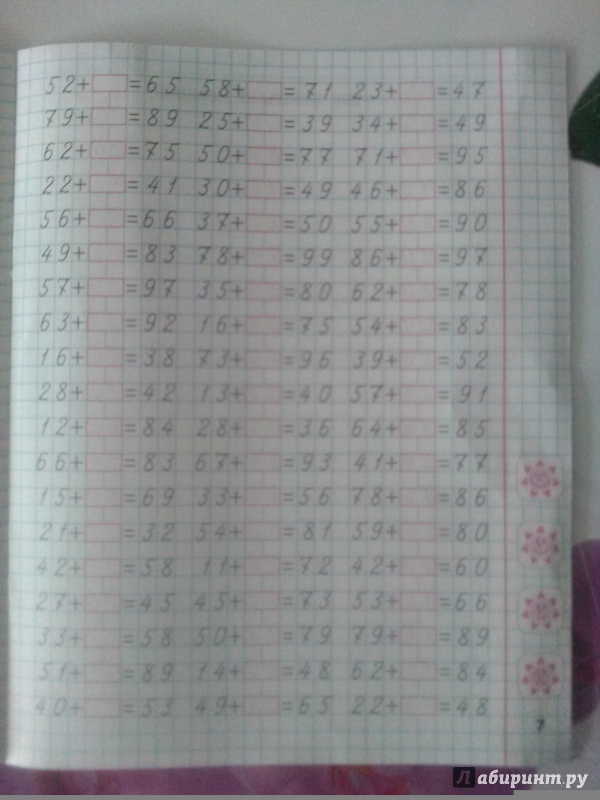 52+ =65 58+ =71 23+ =47
79+ =89 25+ =39 34+ =49
62+ =75 50+ =77 71+ =95
22+ =41 30+ =49 46+ =86
56+ =66 37+ =50 55+ =90
49+ =83 78+ =99 86+ =97
57+ =97 35+ =80 62+ =78
63+ =92 16+ =75 54+ =83
16+ =38 73+ =96 39+ =52
28+ =42 13+ =40 57+ =91
12+ =84 28+ =36 64+ =85
66+ =83 67+ =93 41+ =77
15+ =69 33+ =56 78+ =86
21+ =32 54+ =81 59+ =80
42+ =58 11+ =72 42+ =60
27+ =45 45+ =73 53+ =66
33+ =58 50+ =79 79+ =89
51+ =89 14+ =48 62+ =84
40+ =53 49+ =65 22+ =48
7
Лабиринт.ру